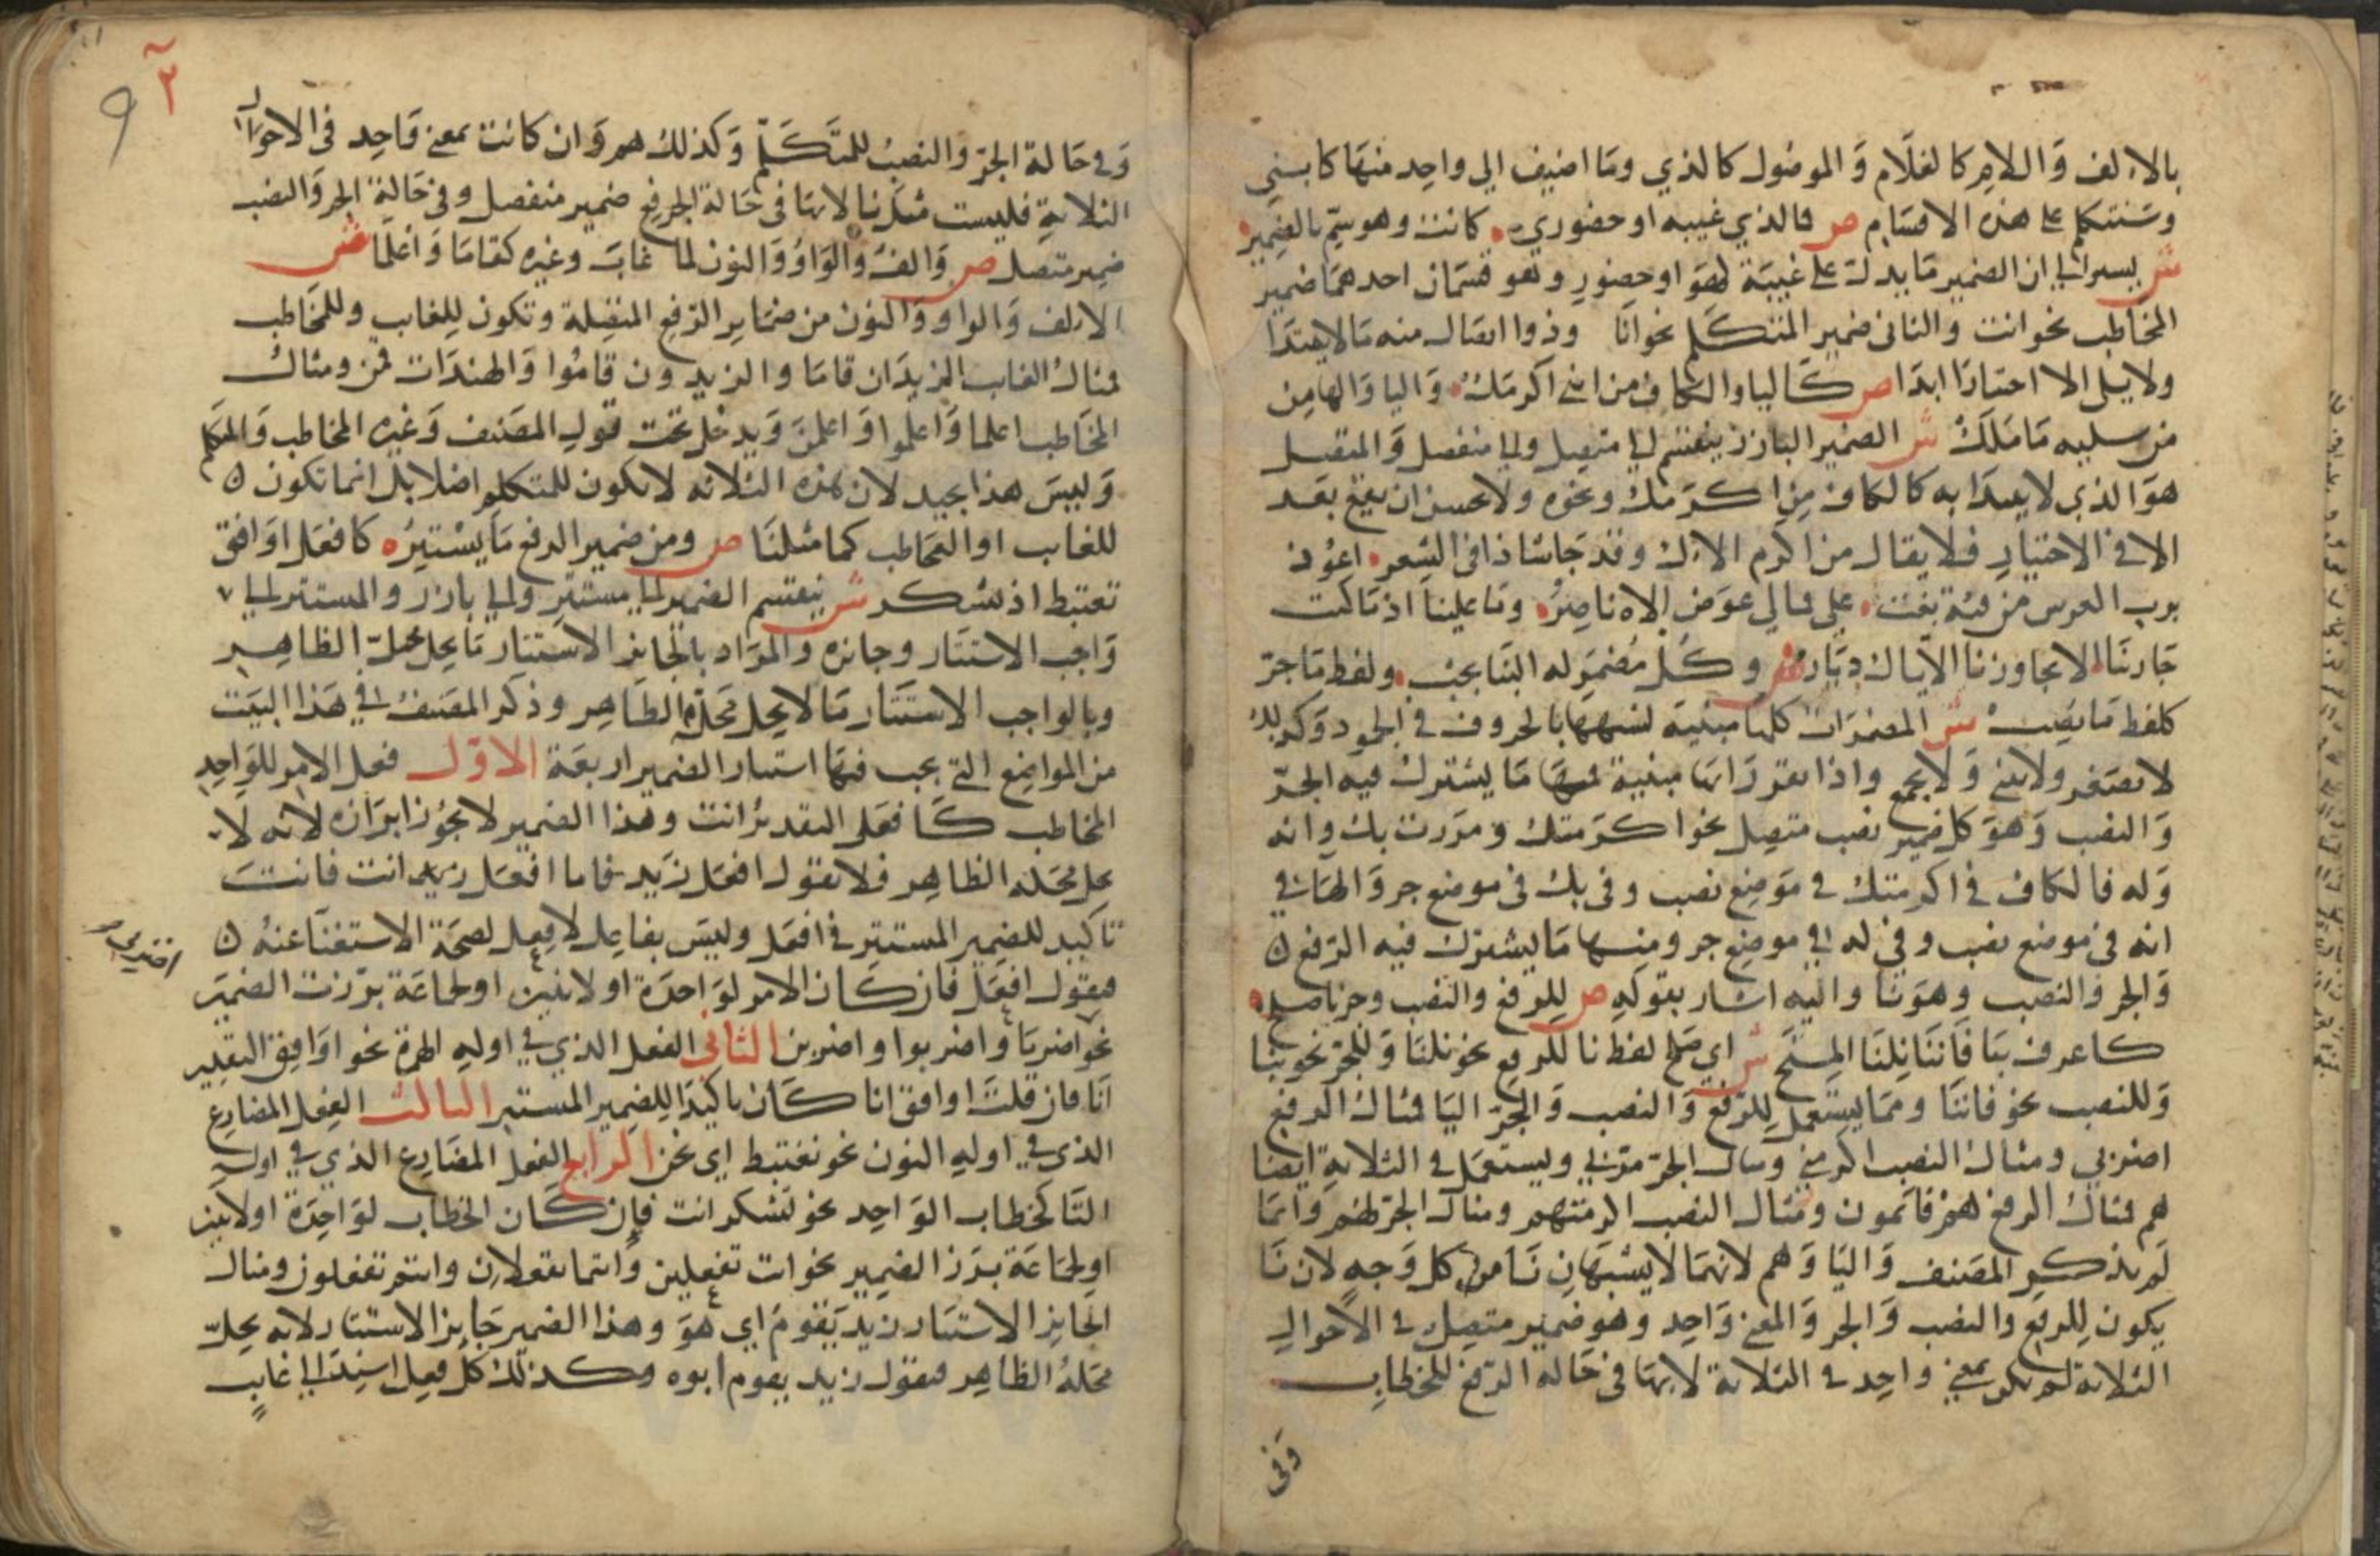 بالالف واللام كالغلام والموصول كالذي وما اضيف الي واحد منها كابني
وسنتكلم على هذه الاقسام ص فالذي غيبه او حضوري كانت وهو سم بالضمير
ش يسير الي ان الضمير ما يدل على غيبة كهو او حضور وهو قسمان احدهما ضمير
المخاطب نحو انت والثاني ضمير المتكلم نحو انا وذو اتصال منه ما لا يبتدا
ولا يلى الا اختيارا ابدا ص كاليا والكاف من ابني اكرمك واليا والها من
من سليه ما ملك ش الضمير البارز ينقسم الى متصل والى منفصل والمتصل
هو الذي لا يبتدا به كالكاف من اكرمك ونحوه ولا يحسن ان يقع بعد
الا في الاختيار فلا يقال من اكرم الاك وقد جا شاذا في الشعر اعوذ
برب العرش من فئة بغت على فما لي عوض الاه ناصر وما علينا اذ ما كنت
جارتنا الا يجاورنا الاك ديار ص وكل مضمر له البنا يجب ولفظ ما جر
كلفظ ما نصب ش المضمرات كلها مبنية لشبهها بالحروف في الجمود وكذلك
لا تصغر ولا تثنى ولا تجمع واذا تقرر انها مبنية فمنها ما يشترك فيه الجر
والنصب وهو كل ضمير نصب متصل نحو اكرمتك ومررت بك وانه
وله فالكاف في اكرمتك في موضع نصب وفي بك في موضع جر والها في
انه في موضع نصب وفي له في موضع جر ومنها ما يشترك فيه الرفع
والجر والنصب وهو نا واليه اشار بقوله ص للرفع والنصب وجر نا صلح
كاعرف بنا فاننا نلنا المنح ش اي صلح لفظ نا للرفع نحو نلنا وللجر نحو بنا
وللنصب نحو فاننا ومما يستعمل للرفع والنصب والجر اليا فمثال الرفع
اضربي ومثال النصب اكرمني ومثال الجر مر بي ويستعمل في الثلاثة ايضا
هم فمثال الرفع هم قائمون ومثال النصب اكرمتهم ومثال الجر لهم وانما
لم يذكر المصنف واليا وهم لانهما لا يشبهان نا من كل وجه لان نا
يكون للرفع والنصب والجر والمعنى واحد وهو ضمير متصل في الاحوال
الثلاثة لم تكن بمعنى واحد في الثلاثة لانها في حالة الرفع للمخطاب
وفى
وفي حالة الجر والنصب للمتكلم وكذلك هم وان كانت بمعنى واحد في الاحوال
الثلاثة فليست مثل نا لانها في حالة الرفع ضمير منفصل وفي حالة الجر والنصب
ضمير متصل ص والف والواو والنون لما غاب وغيره كقاما واعلما ش
الالف والواو والنون من ضماير الرفع المتصلة وتكون للغايب وللمخاطب
فمثال الغايب الزيدان قاما والزيدون قاموا والهندات قمن ومثال
المخاطب اعلما واعلموا واعلمن ويدخل تحت قول المصنف وغيره المخاطب والمتكلم
وليس هذا بجيد لان هذه الثلاثه لا تكون للمتكلم اصلا بل انما تكون
للغايب او المخاطب كما مثلنا ص ومن ضمير الرفع ما يستتر كافعل اوافق
نغتبط اذ تشكر ش ينقسم الضمير الى مستتر والى بارز والمستتر الى
واجب الاستتار وجائزه والمراد بالجايز الاستتار ما يحل محله الظاهر
وبالواجب الاستتار ما لا يحل محله الظاهر وذكر المصنف في هذا البيت
من المواضع التي يجب فيها استتار الضمير اربعة الاول فعل الامر للواحد
المخاطب كافعل التقدير انت وهذا الضمير لا يجوز ابرازه لانه لا
يحل محله الظاهر فلا تقول افعل زيد فاما افعل زيد انت فانت
تاكيد للضمير المستتر في افعل وليس بفاعل لافعل لصحة الاستغنا عنه
فتقول افعل فان كان الامر لواحدة او لاثنين او لجماعة برزت الضمير
نحو اضربا واضربوا واضربن الثاني الفعل الذي في اوله الهمزة نحو اوافق التقدير
انا فان قلت اوافق انا كان تاكيدا للضمير المستتر الثالث الفعل المضارع
الذي في اوله النون نحو نغتبط اي نحن الرابع الفعل المضارع الذي في اوله
التا لخطاب الواحد نحو تشكر انت فان كان الخطاب لواحدة او لاثنين
او لجماعة برز الضمير نحو انت تفعلين وانتما تفعلان وانتم تفعلون ومثال
الجايز الاستتار زيد يقوم اي هو وهذا الضمير جايز الاستتار لانه يحل
محله الظاهر فتقول زيد يقوم ابوه وكذلك كل فعل اسند الى غايب